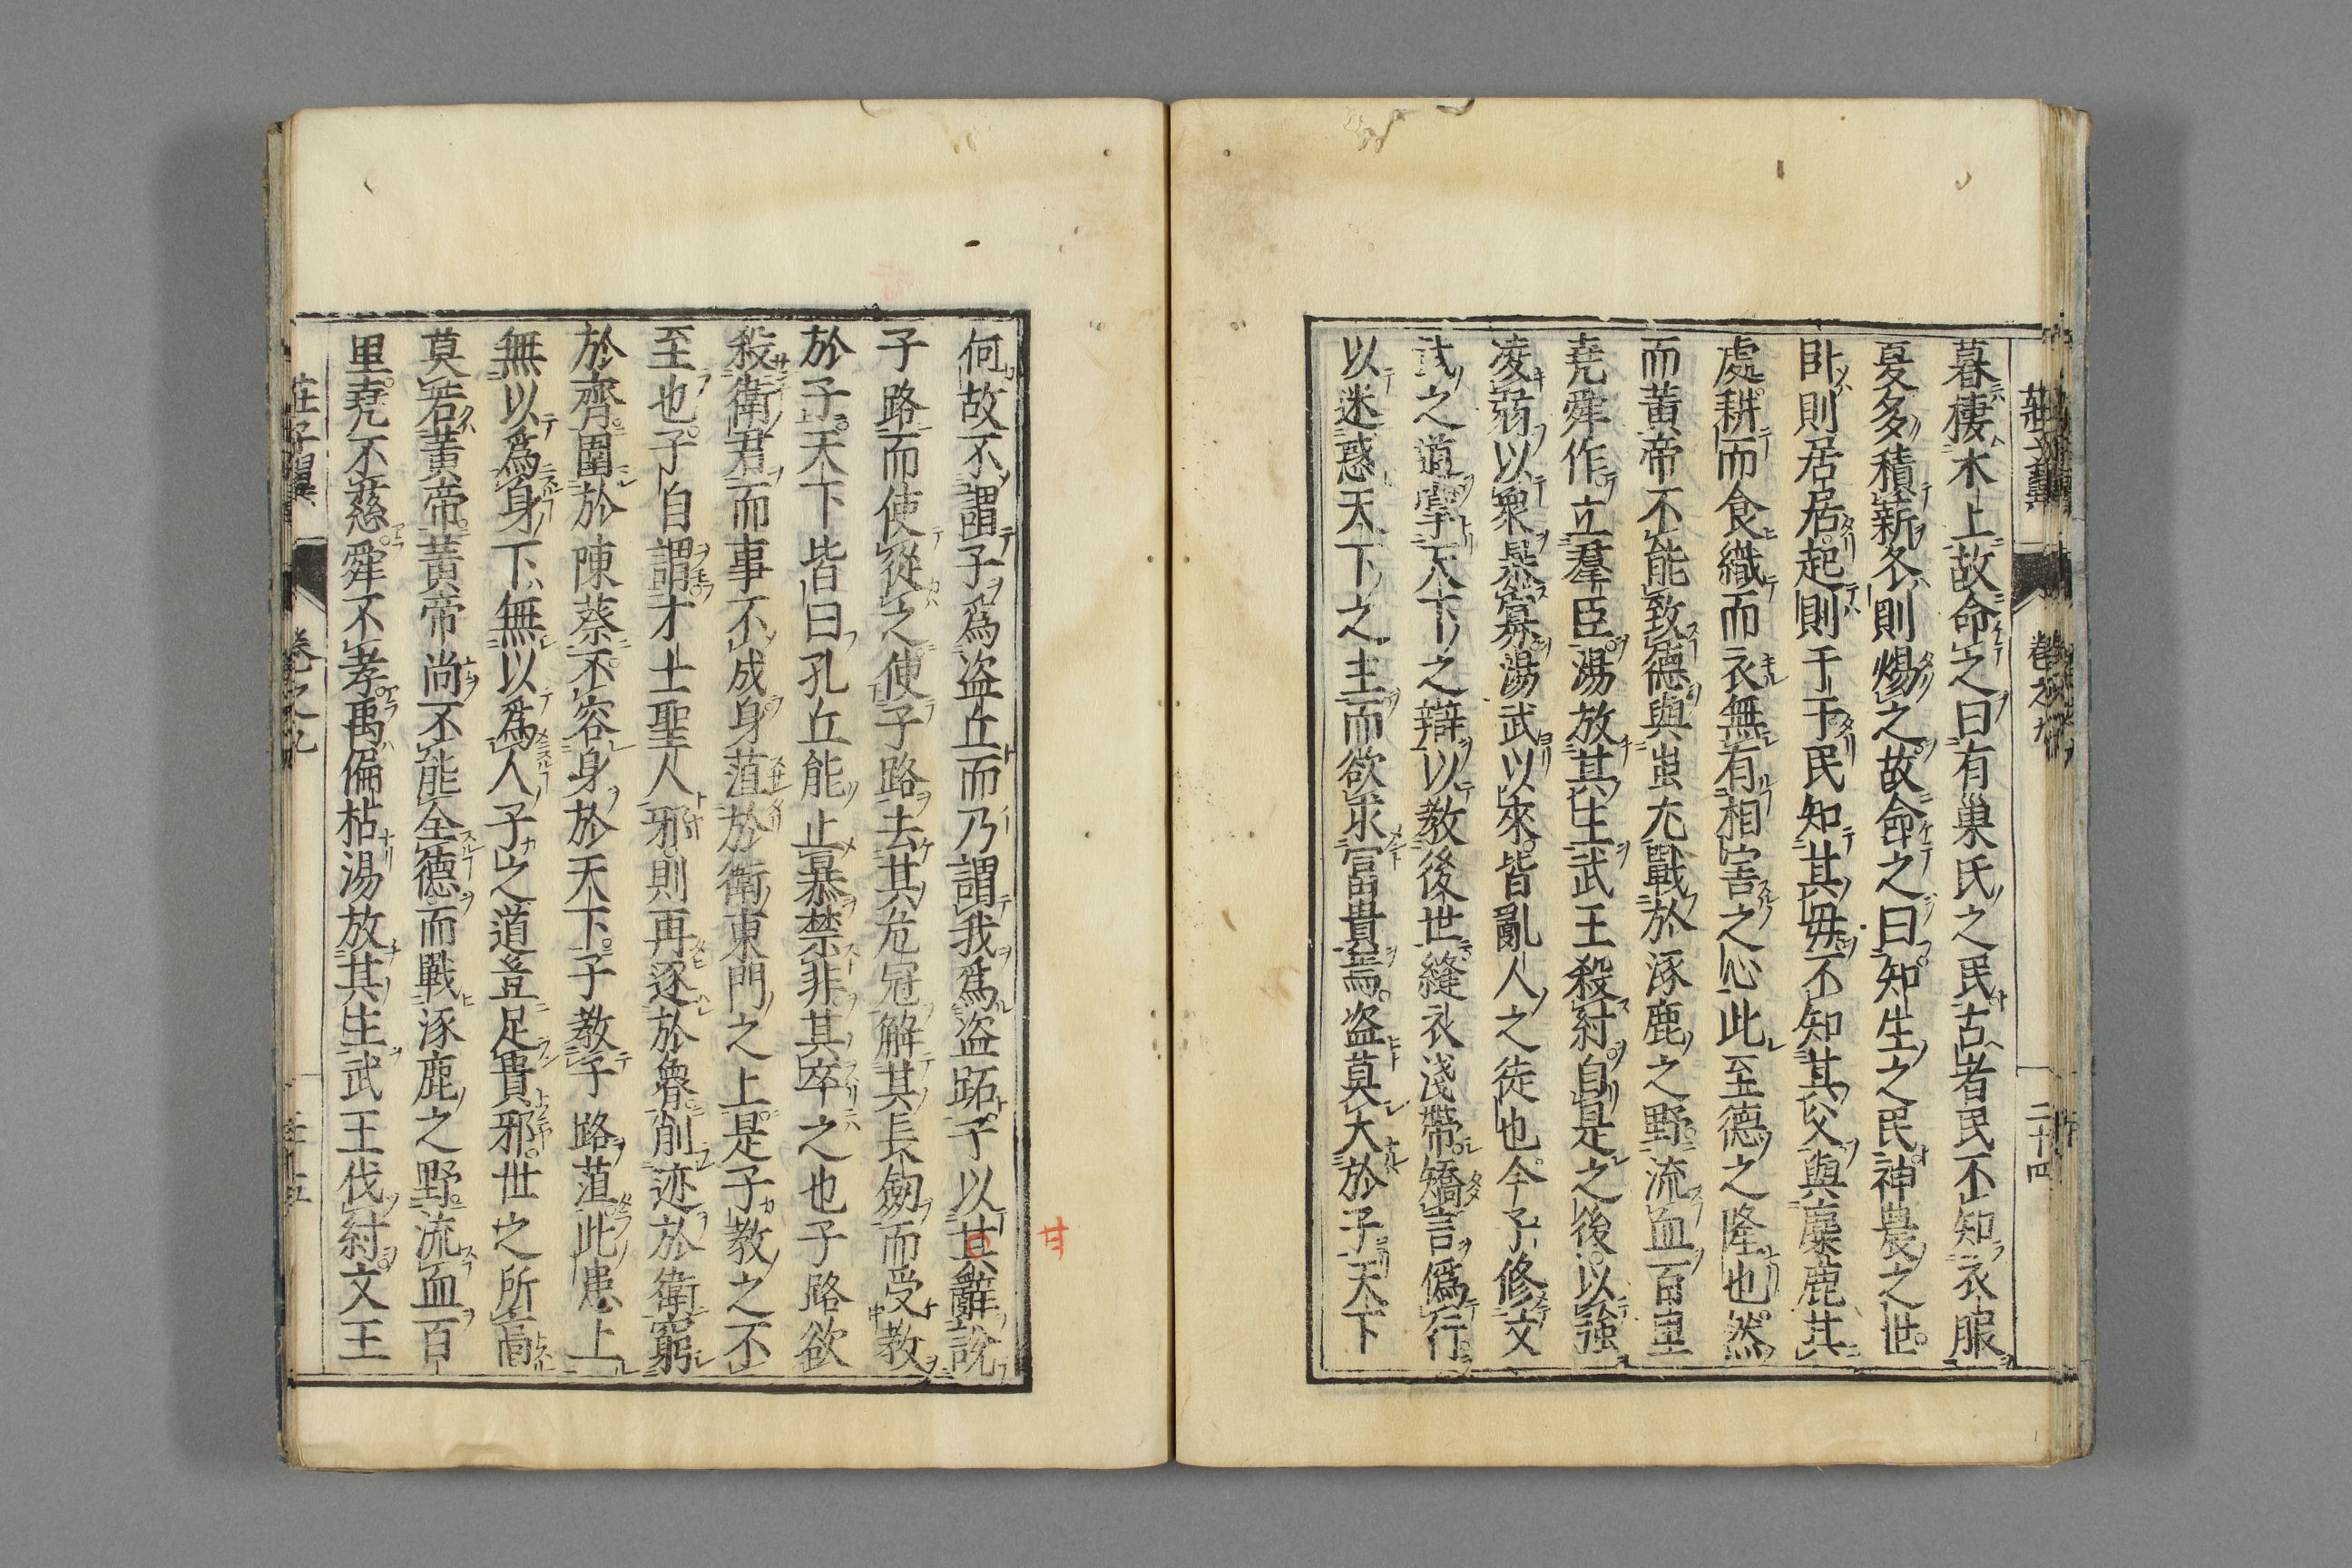 莊子翼 卷之九 二十四
暮棲木上故命之曰有巢氏之民古者民不知衣服
夏多積薪冬則煬之故命之曰知生之民神農之世
卧則居居起則于于民知其毋不知其父與麋鹿其
處耕而食織而衣無有相害之心此至德之隆也然
而黃帝不能致德與蚩尤戰於涿鹿之野流血百里
堯舜作立羣臣湯放其主武王殺紂自是之後以強
凌弱以衆暴寡湯武以來皆亂人之徒也今子修文
武之道掌天下之辯以教後世縫衣淺帶矯言僞行
以迷惑天下之主而欲求富貴焉盜莫大於子天下
何故不謂子爲盜丘而乃謂我爲盜跖子以其辭說
子路而使從之使子路去其危冠解其長劒而受教
於子天下皆曰孔丘能止暴禁非其卒之也子路欲
殺衛君而事不成身菹於衛東門之上是子教之不
至也子自謂才士聖人邪則再逐於魯削迹於衛窮
於齊圍於陳蔡不容身於天下子教子路菹此患上
無以爲身下無以爲人子之道豈足貴邪世之所高
莫若黃帝黃帝尚不能全德而戰涿鹿之野流血百
里堯不慈舜不孝禹偏枯湯放其主武王伐紂文王
莊子翼 卷之九 二十五
甘